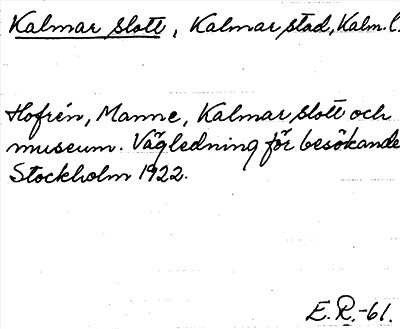 Kalmar slott, Kalmar stad, Kalm. l.
Hofrén, Manne, Kalmar slott och
museum. Vägledning för besökande
Stockholm 1922.
E.R.-61.